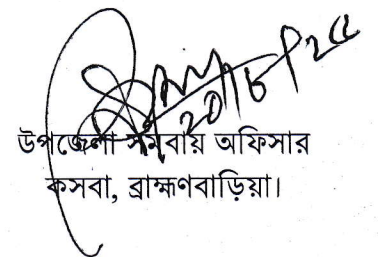 ২০।৮।২৫
উপজেলা সমবায় অফিসার
কসবা, ব্রাহ্মণবাড়িয়া।